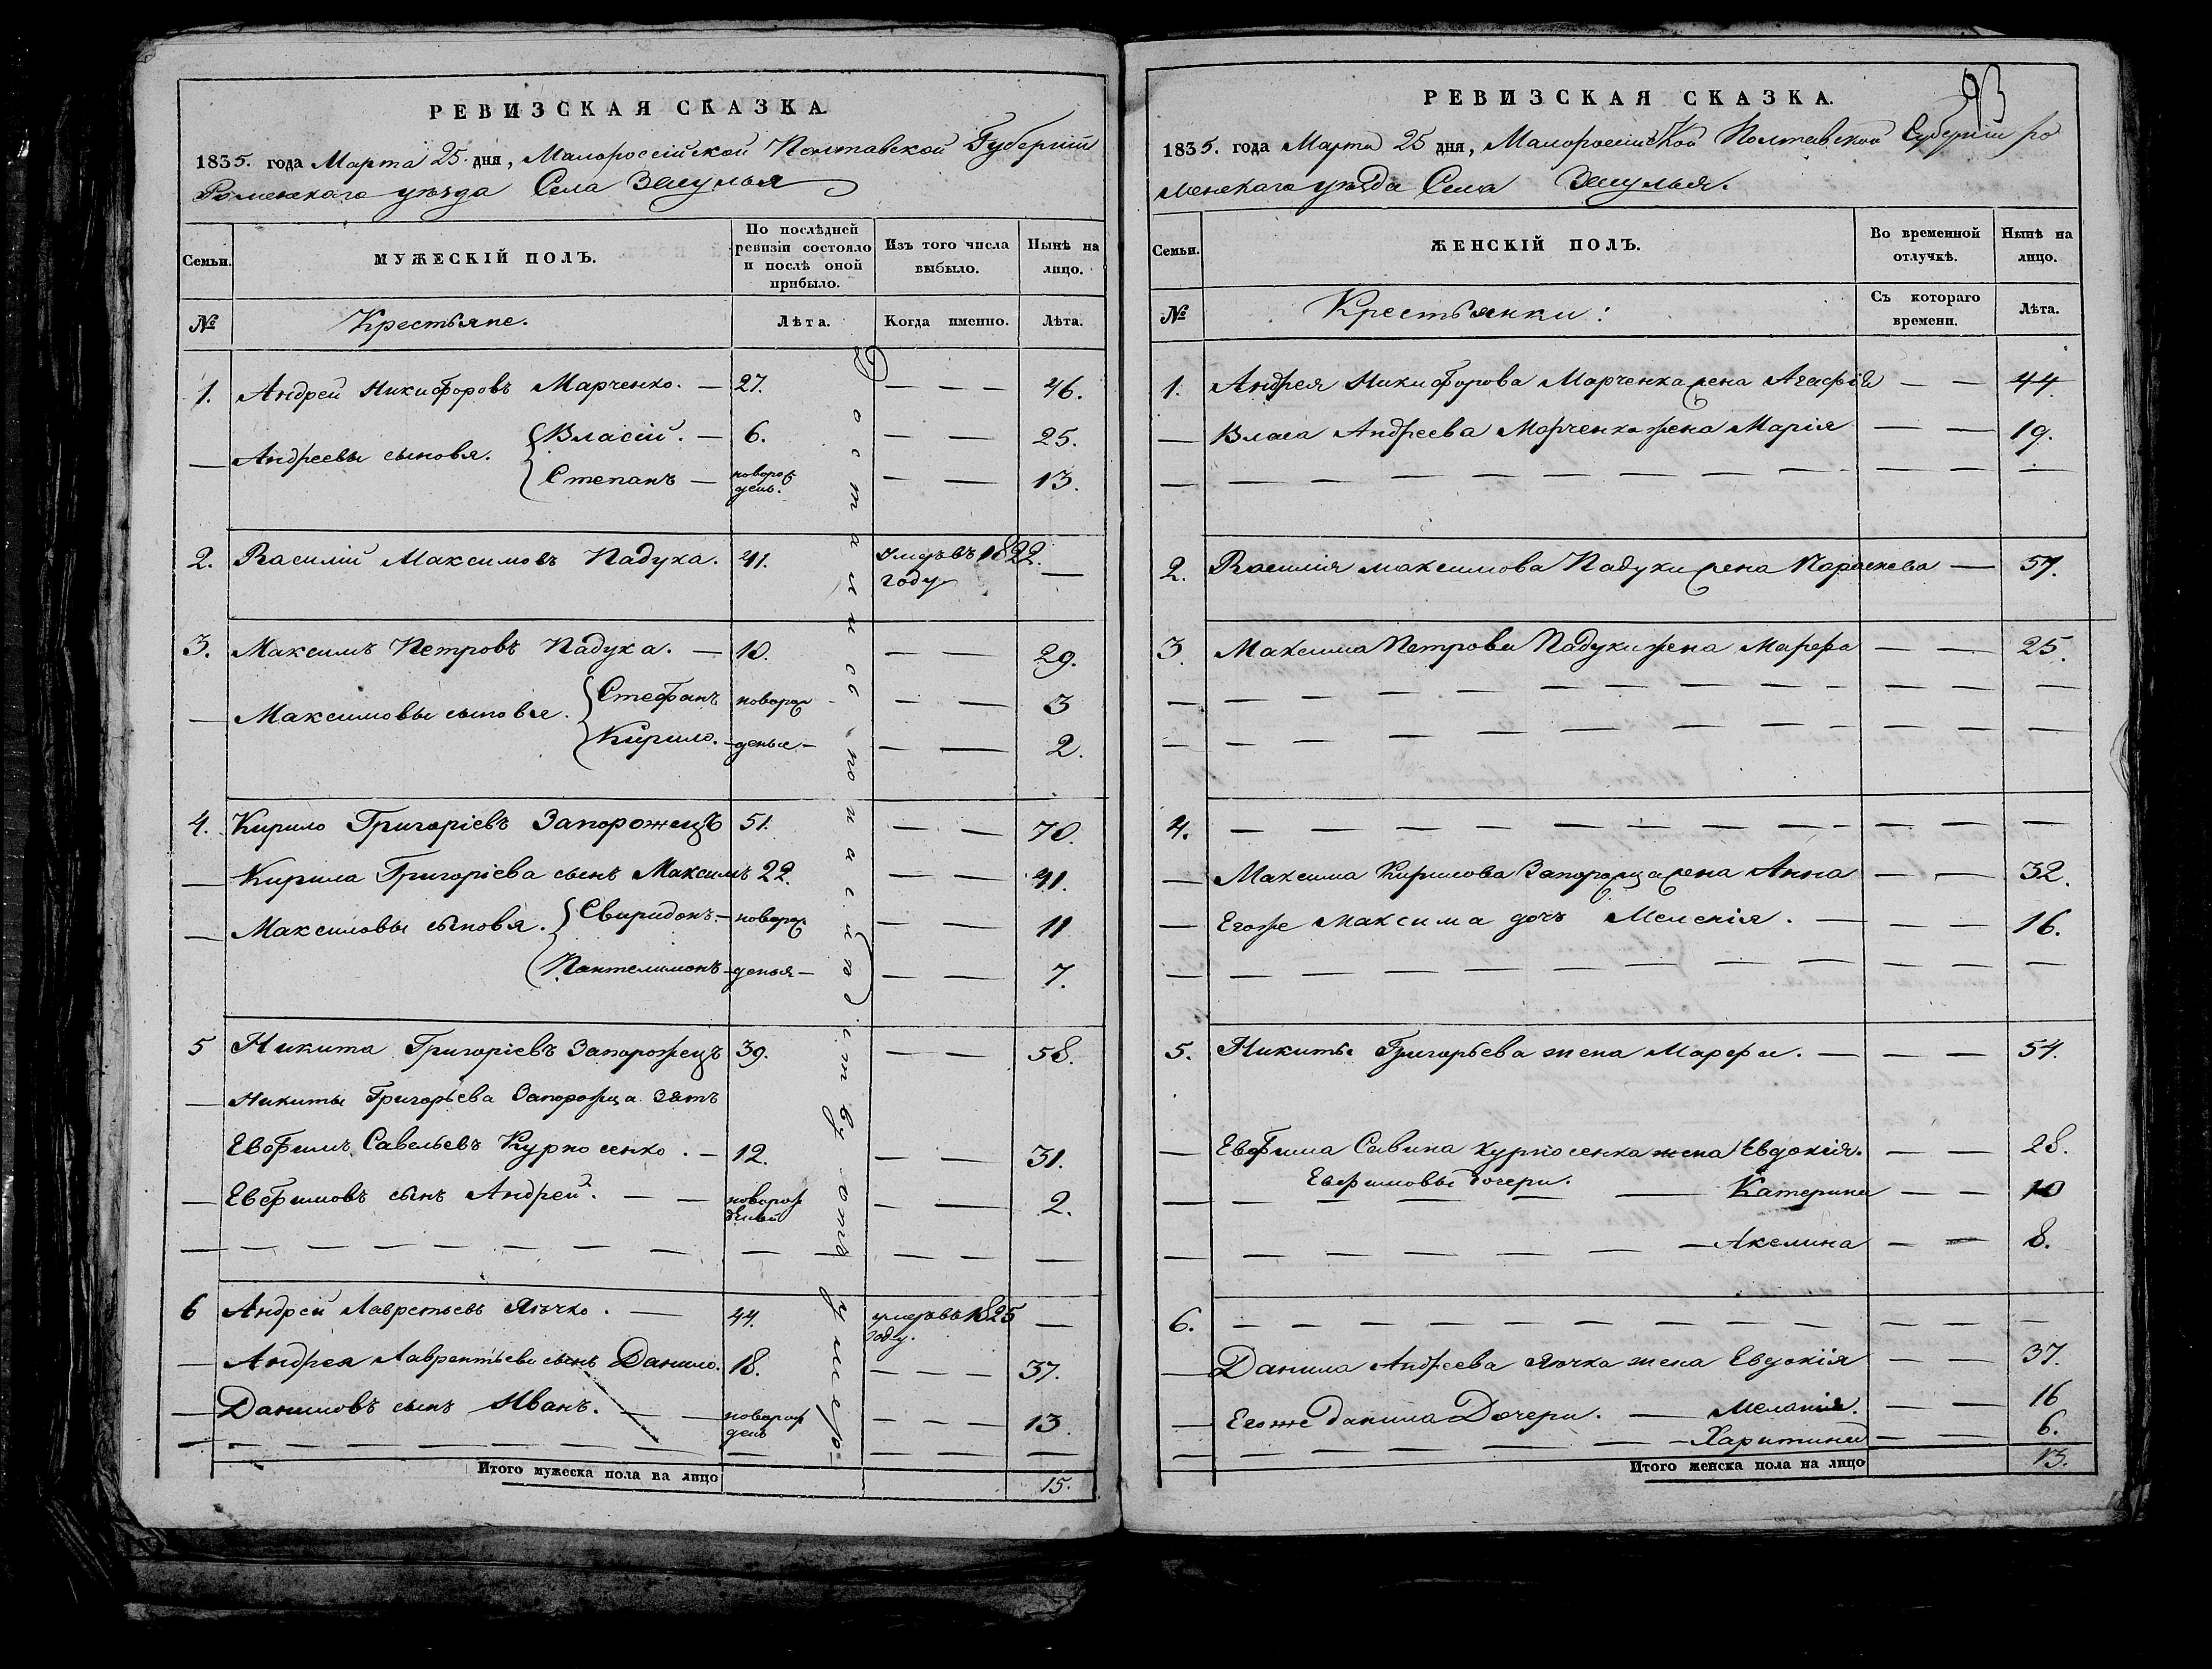 РЕВИЗСКАЯ СКАЗКА
1835. года Марта 25. дня, Малороссійской Полтавской Губерніи
Роменскаго уѣзда Села Засулья
Семьи.
МУЖЕСКІЙ ПОЛЪ.
По послѣдней ревизіи состояло и послѣ оной прибыло.
Изъ того числа выбыло.
Нынѣ на лицо.
№
Крестьяне.
Лѣта.
Когда именно.
Лѣта.
1. Андрей Никифоровъ Марченко. — 27. — — — 46.
— Андреевы сыновя. Власій. — 6. — — 25.
Степанъ — новорож день. — — 13.
2. Василій Максимовъ Падука. 41. Умеръ въ 1822. году —
3. Максимъ Петровъ Падука. — 10. — — 29.
— Максимовы сыновя. Стефанъ новорож — — 3
Кирило. — деные — — — 2.
4. Кирило Григоріевъ Запорожецъ 51. — — 70.
— Кирила Григоріева сынъ Максимъ 22. — — 41.
— Максимовы сыновя. Свиридонъ. — новорож — — 11
Пантелимонъ — деныя — — — 7.
5 Никита Григоріевъ Запорожецъ 39. — — 58.
— Никиты Григорьева Запорожца зять
Евфимъ Савельевъ Курносенко. — 12. — — 31.
— Евфимовъ сынъ Андрей. — — новорож деный — — 2.
6 Андрей Лаврентьевъ Ячко. — 44. умеръ въ 1825 году. —
— Андрея Лаврентьева сынъ Данило. 18. — — — 37.
— Даниловъ сынъ Иванъ. — — новорож день — — — 13.
Итого мужеска пола на лицо 15.
93
РЕВИЗСКАЯ СКАЗКА.
1835. года Марта 25 дня, Малороссійской Полтавской Губерніи Ро
менскаго уѣзда Села Засулья.
Семьи.
ЖЕНСКІЙ ПОЛЪ.
Во временной отлучкѣ.
Нынѣ на лицо.
№
Крестьянки:
Съ котораго времени.
Лѣта.
1. Андрея Никифорова Марченка жена Агафія — — 44
— Власа Андреева Марченка жена Марія — — 19.
2. Василія Максимова Падуки жена Параскева — 57.
3. Максима Петрова Падуки жена Марфа — — 25.
4. — — —
— Максима Кирилова Запорожца жена Анна — — 32.
— Егоже Максима дочъ Меленія. — — — 16.
5. Никиты Григорьева жена Марфа. — — — 54.
— Евфима Савина Курносенка жена Евдокія. — — 28.
— Евфимовы дочери. — Катерина — — 10
— Акелина — — 8.
6. — — —
— Данила Андреева Ячка жена Евдокія — — 37.
— Егоже Данила Дочери. — Меланія. — — 16
— Харитина — — 6.
Итого женска пола на лицо 13.